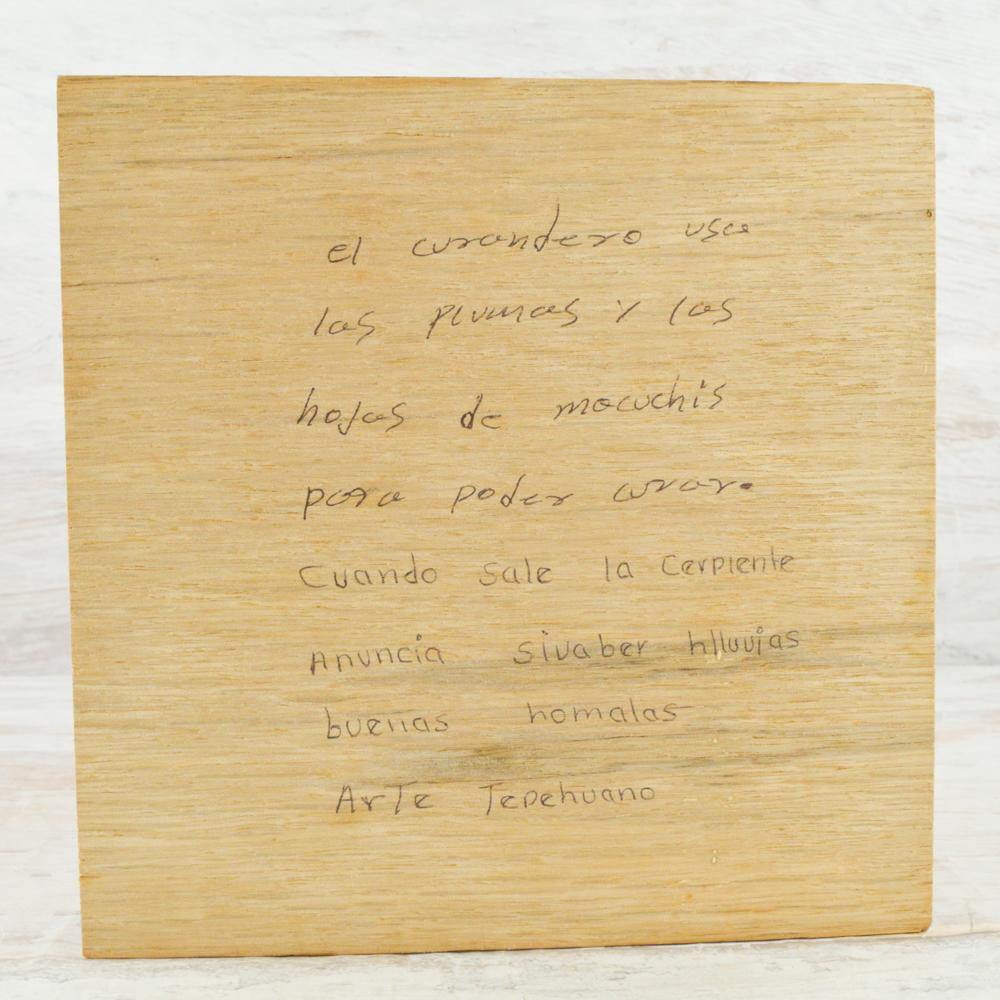 el curandero usa
las plumas y las
hojas de macuchis
para poder curar.
Cuando sale la Cerpiente
Anuncia sivaber hlluvias
buenas homalas
Arte Tepehuano